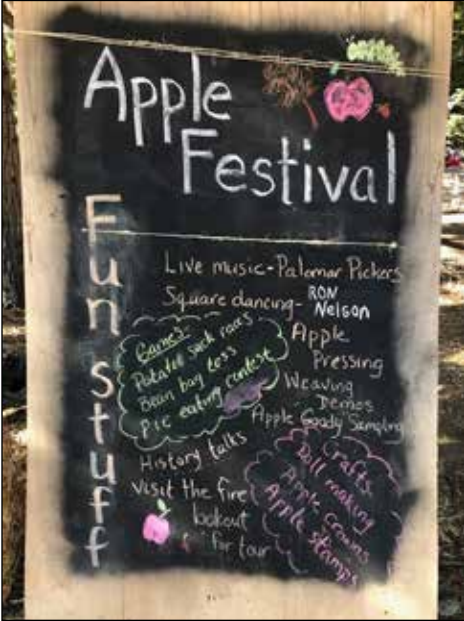 Apple
Festival
Fun Stuff
Live music - Palomar Pickers
Square dancing - RON
Nelson
Games-
Potatoe sack races
Bean bag toss
Pie eating contest
Apple
Pressing
Weaving
Demos
Apple Goody Sampling
History talks
Visit the fire
lookout
for tour
Crafts
Doll making
Apple crowns
Apple stamps